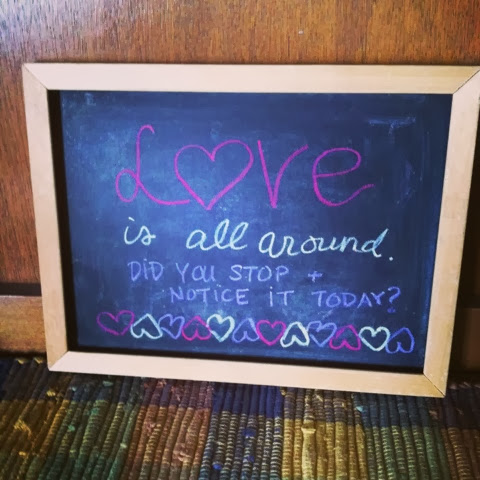 Love
is all around.
DID YOU STOP +
NOTICE IT TODAY?